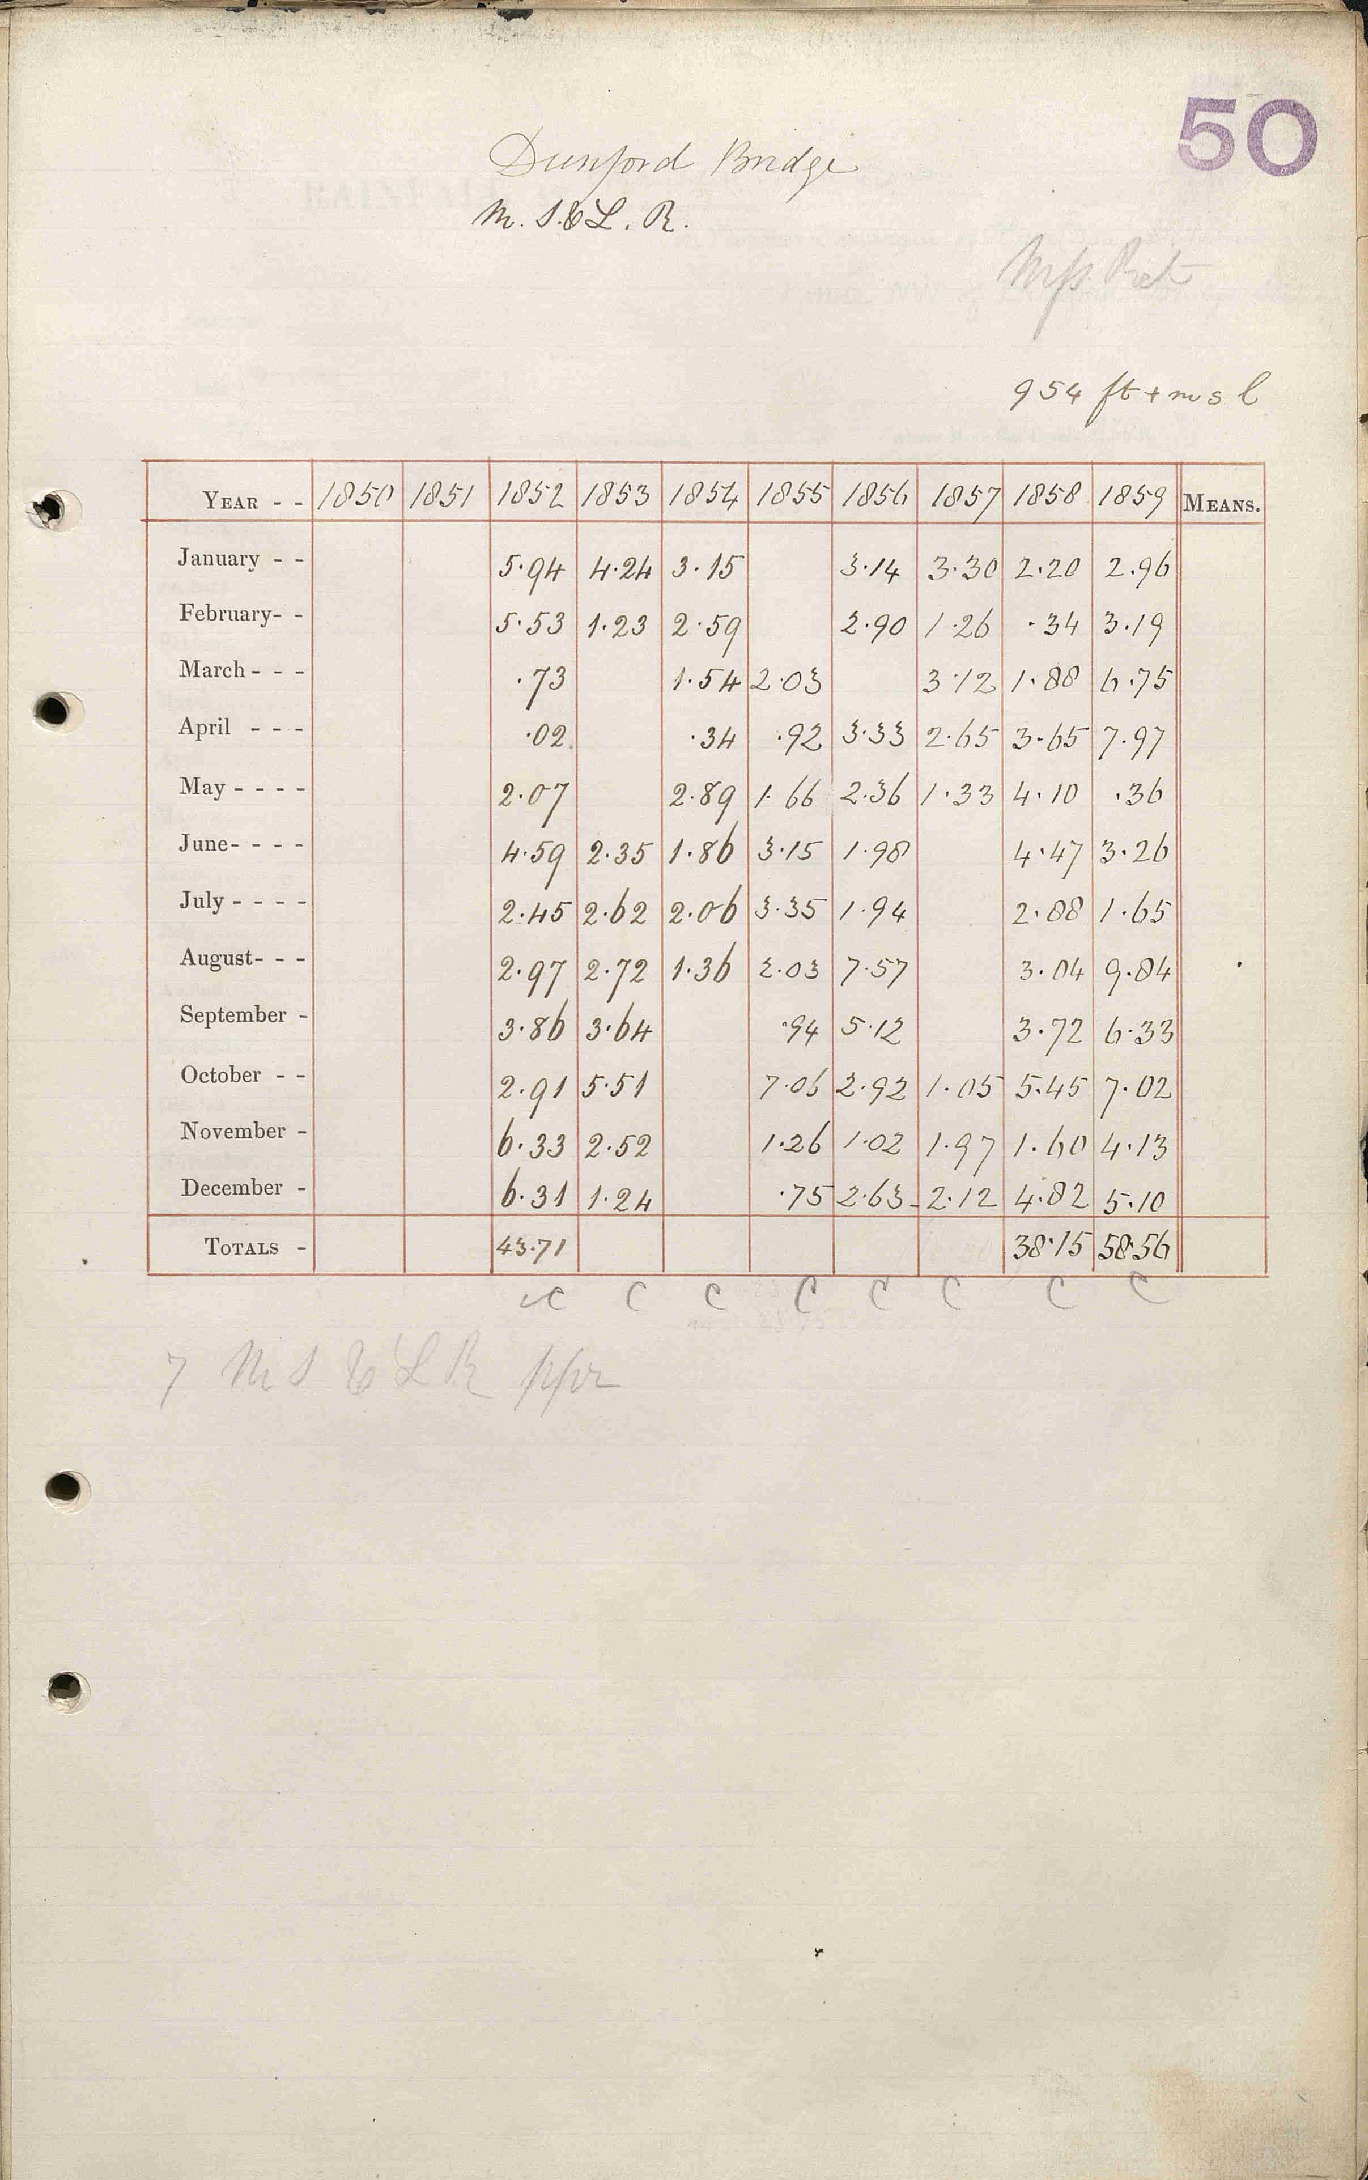 50
Dunford Bridge
M. S. & L. R.
954 ft + m s l
YEAR - - 1850 1851 1852 1853 1854 1855 1856 1857 1858 1859 MEANS.
January - - 5.94 4.24 3.15 3.14 3.30 2.20 2.96
February- - 5.53 1.23 2.59 2.90 1.26 .34 3.19
March - - - .73 1.54 2.03 3.12 1.88 6.75
April - - - .02 .34 .92 3.33 2.65 3.65 7.97
May - - - - 2.07 2.89 1.66 2.36 1.33 4.10 .36
June- - - - 4.59 2.35 1.86 3.15 1.98 4.47 3.26
July - - - - 2.45 2.62 2.06 3.35 1.94 2.88 1.65
August- - - 2.97 2.72 1.36 2.03 7.57 3.04 9.84
September - 3.86 3.64 .94 5.12 3.72 6.33
October - - 2.91 5.51 7.06 2.92 1.05 5.45 7.02
November - 6.33 2.52 1.26 1.02 1.97 1.60 4.13
December - 6.31 1.24 .75 2.63 2.12 4.82 5.10
TOTALS - 43.71 38.15 58.56
C C C C C C C C
7 M S & L R